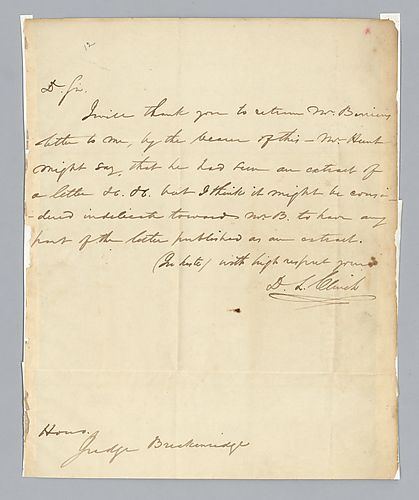 12
Dr. Sir.
I will thank you to return Mr. Berriens
letter to me, by the bearer of this - Mr. Hunt
might say, that he had seen an extract of
a letter &c. &c. but I think it might be consi
-dered indelicate toward Mr. B. to have any
part of the letter published as an extract.
(In haste) with high respect yours
D. L. Clinch
Hono.
Judge Breckenridge